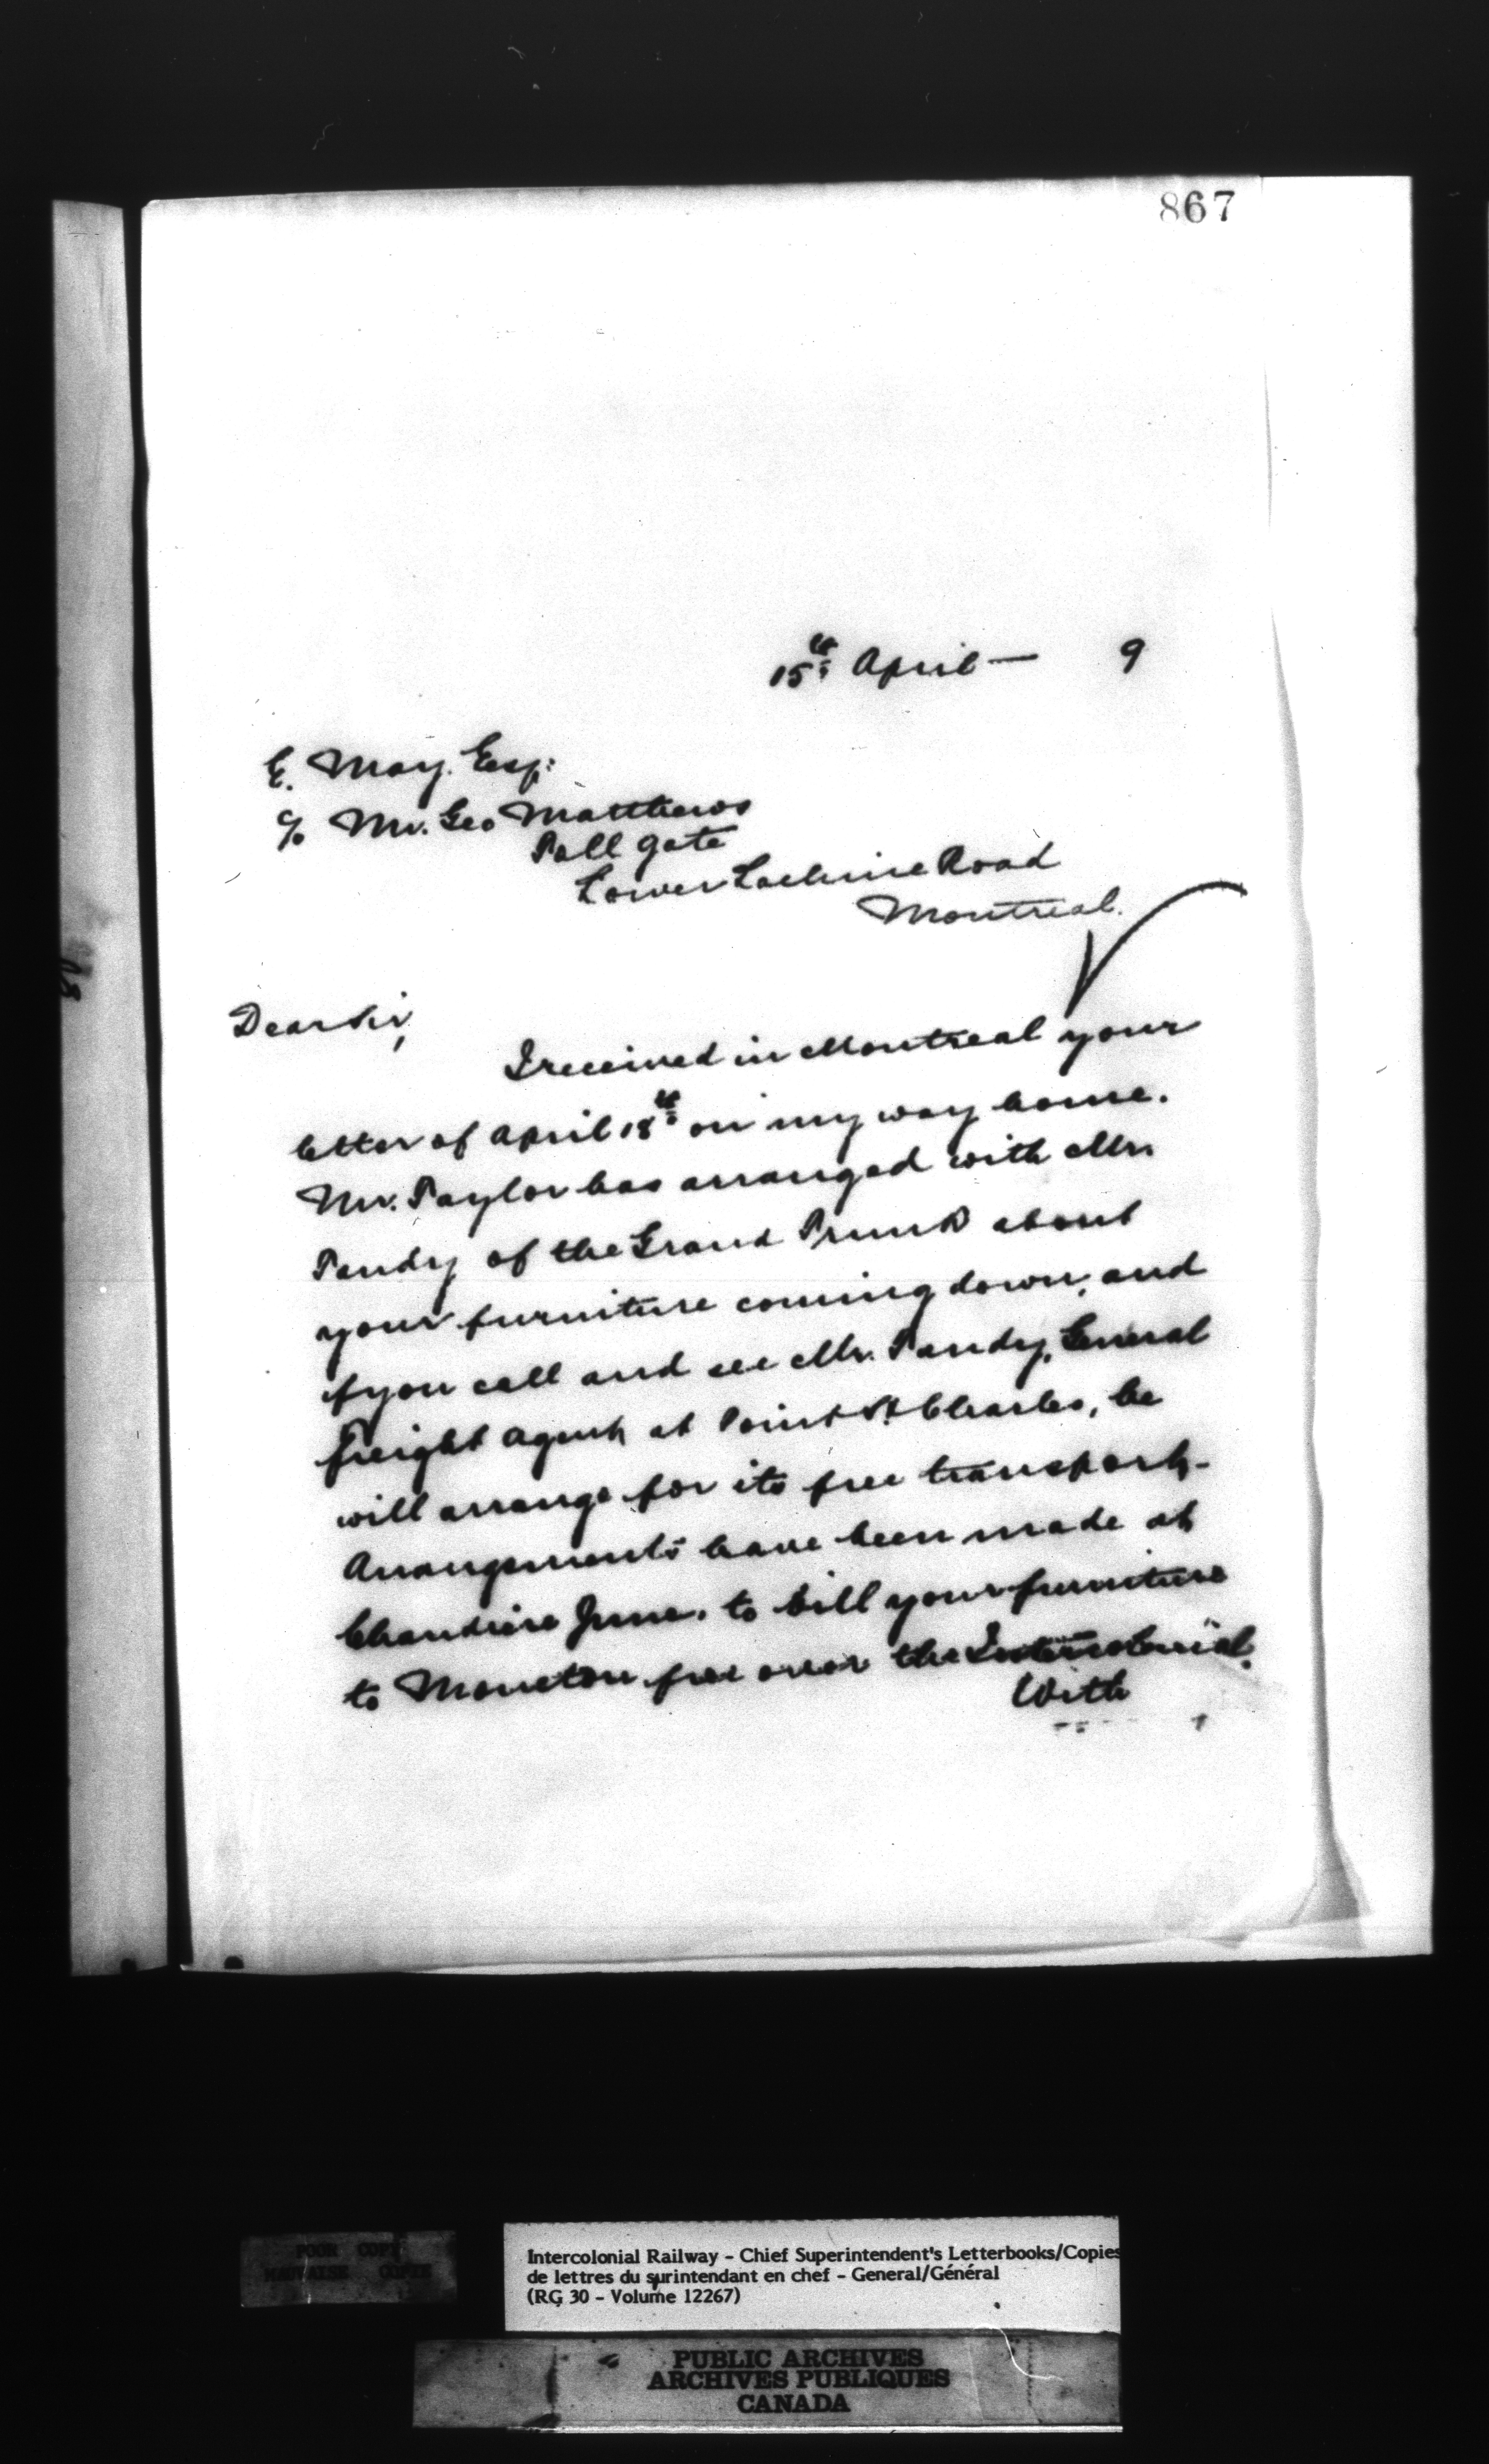 867
15th April — 9
E. May. Esq:
c/o Mr. Geo Matthews
Toll gate
Lower Lachine Road
Montreal.
Dear Sir,
I received in Montreal your
letter of April 18th on my way home.
Mr. Taylor has arranged with Mr.
Tandy of the Grand Trunk about
your furniture coming down, and
if you call and see Mr. Tandy, General
Freight Agent at Point St Charles, he
will arrange for its free transport-
Arrangements have been made at
Chaudiere Junc. to bill your furniture
to Moncton free over the Intercolonial.
With
POOR COPY
MAUVAISE COPIE
Intercolonial Railway - Chief Superintendent's Letterbooks/Copies
de lettres du surintendant en chef - General/Général
(RG 30 - Volume 12267)
PUBLIC ARCHIVES
ARCHIVES PUBLIQUES
CANADA